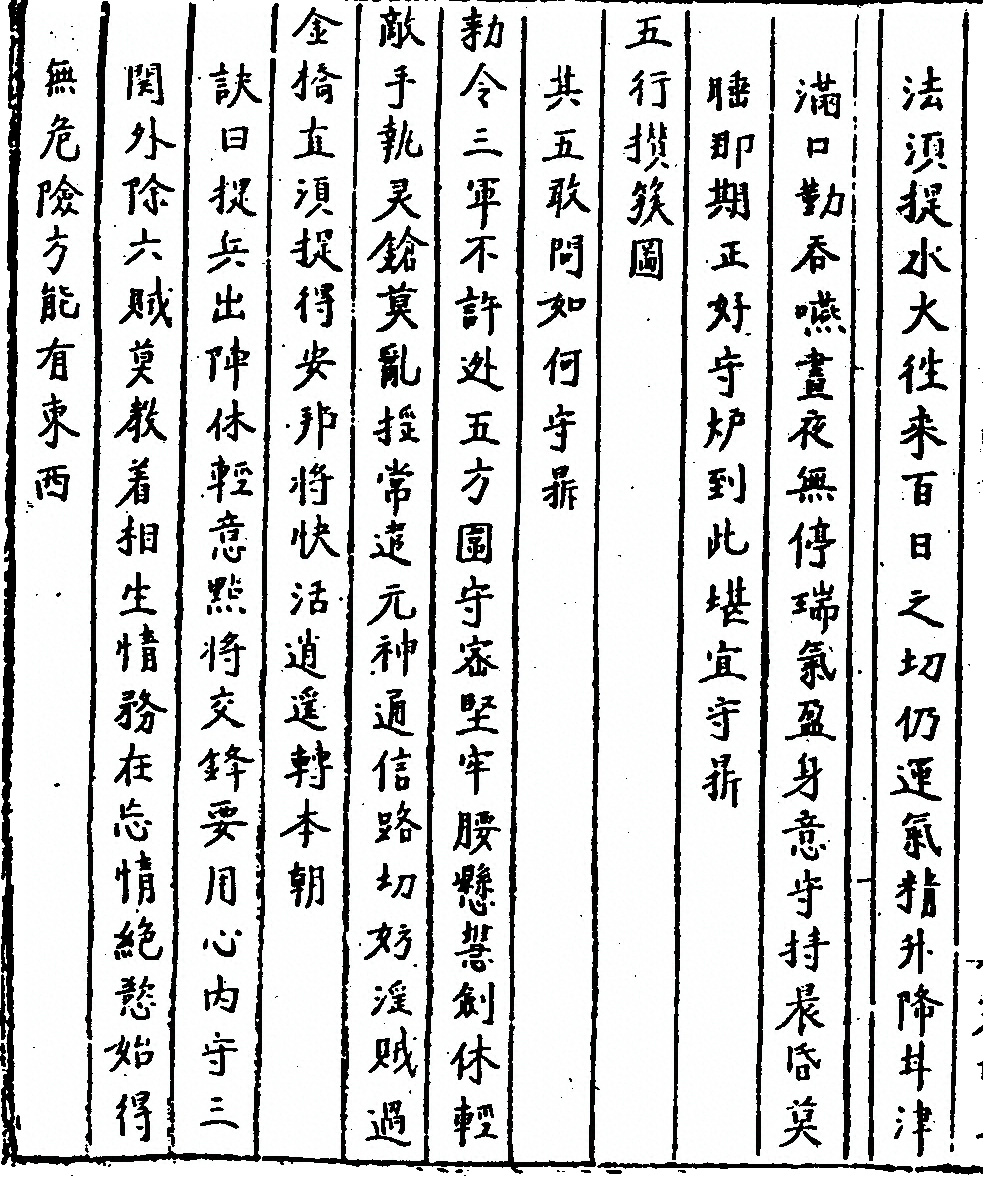 法須捉水火徃来百日之切仍运氣精升降甘津
滿口勤吞嚥晝夜無停瑞氣盈身意守持晨昏莫
睡即期正好守炉到此堪宜守鼎
五行攅簇圖
其五敢問如何守鼎
勅令三軍不許迯五方圍守宻堅牢腰懸慧劍休輕
敵手執灵鎗莫亂揺常遣元神通信路切妨淫賊過
金橋直須捉得安邦将快活逍遥轉本朝
訣曰捉兵出陣休輕意點将交鋒要用心内守三
関外除六賊莫教着相生情務在忘情絶慾始得
無危險方能有東西